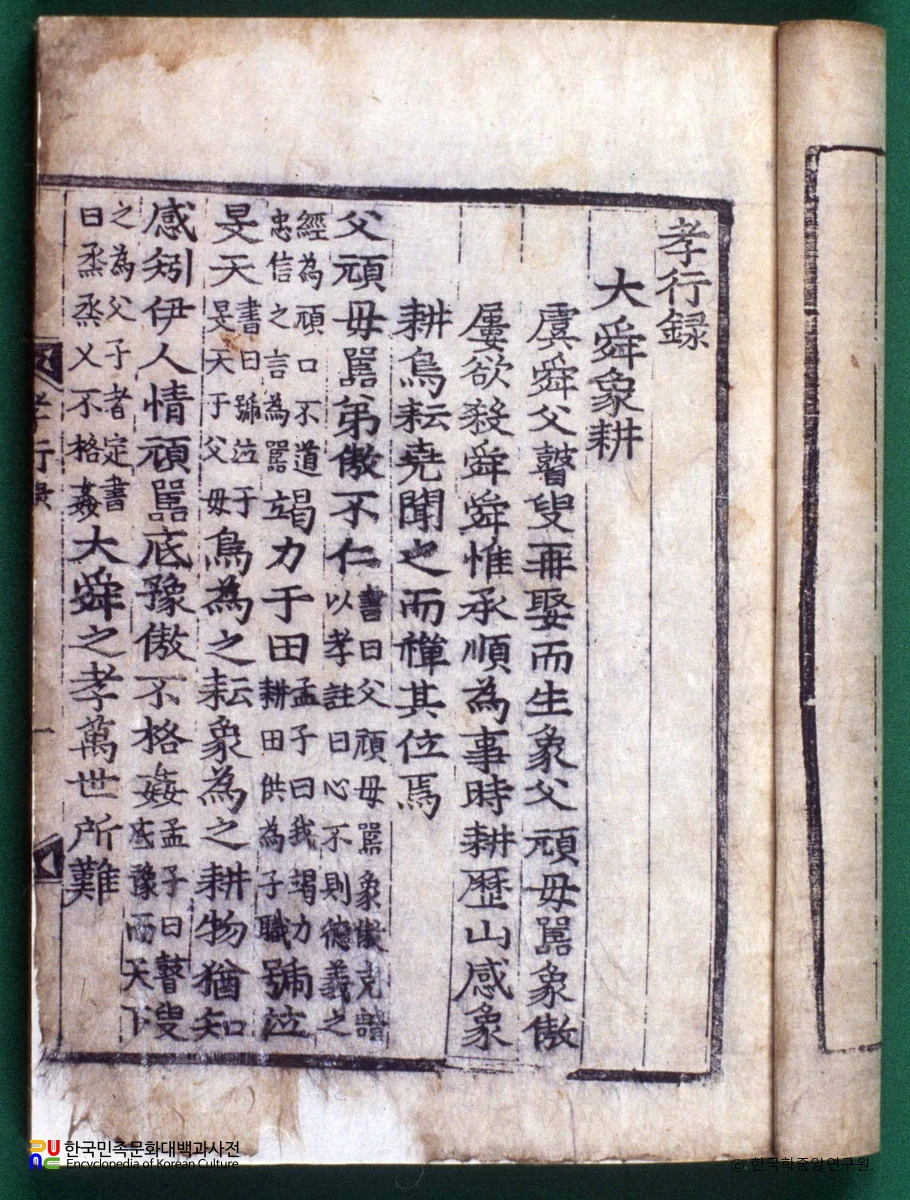 孝行録
大舜象耕
虞舜父瞽叟再娶而生象父頑母嚚象傲
屢欲殺舜舜惟承順為事時耕歷山感象
耕鳥耘堯聞之而禪其位焉
父頑母嚚弟傲不仁書曰父頑母嚚象傲克諧以孝註曰心不則德義之
經為頑口不道忠信之言為嚚竭力于田孟子曰我竭力耕田供為子職號泣
旻天書曰號泣于旻天于父母鳥為之耘象為之耕物猶知
感矧伊人情頑嚚底豫傲不格姦孟子曰瞽叟底豫而天下
之為父子者定書曰烝烝乂不格姦大舜之孝萬世所難
孝行
一
한국민족문화대백과사전
Encyclopedia of Korean Culture
(c) 한국학중앙연구원